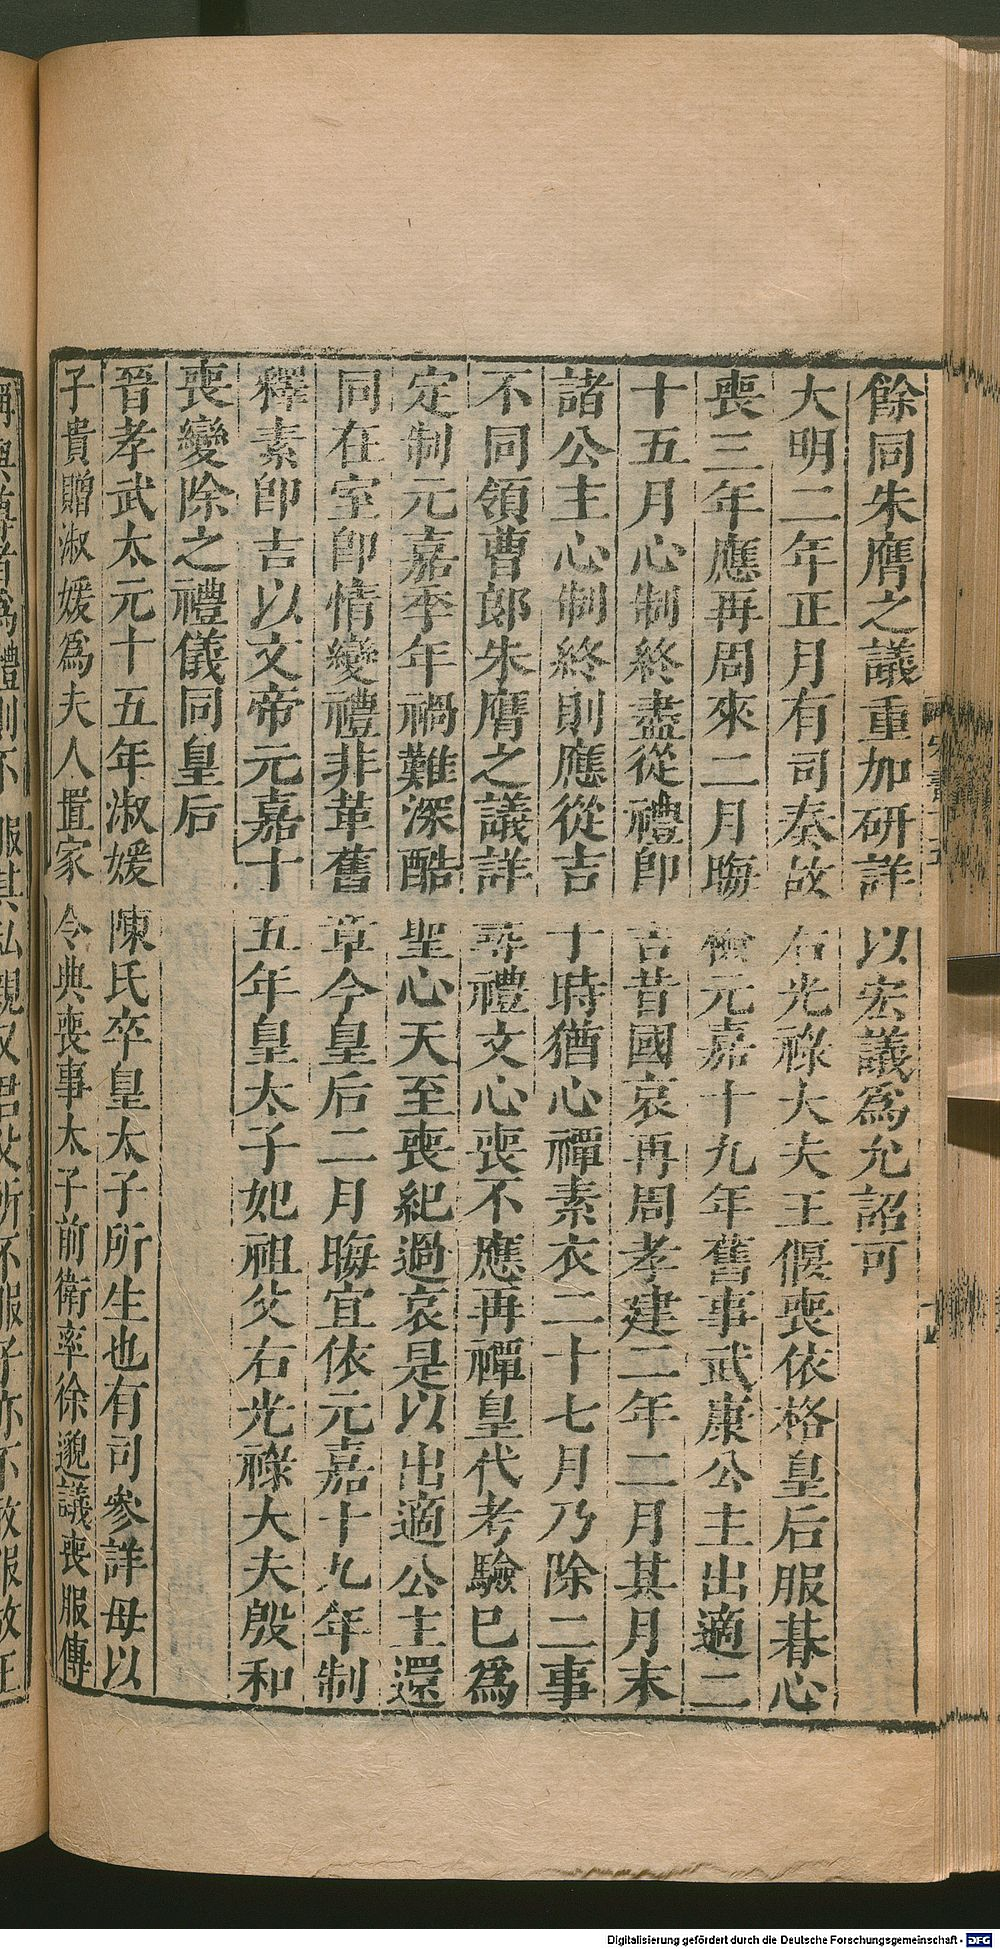 餘同朱膺之議重加研詳以宏議爲允詔可
大明二年正月有司奏故右光祿大夫王偃喪依格皇后服朞心
喪三年應再周來二月晦檢元嘉十九年舊事武康公主出適二
十五月心制終盡從禮卽吉昔國哀再周孝建二年二月其月末
諸公主心制終則應從吉于時猶心禫素衣二十七月乃除二事
不同領曹郎朱膺之議詳尋禮文心喪不應再禫皇代考驗已爲
定制元嘉季年禍難深酷聖心天至喪紀過哀是以出適公主還
同在室卽情變禮非革舊章今皇后二月晦宜依元嘉十九年制
釋素卽吉以文帝元嘉十五年皇太子妃祖父右光祿大夫殷和
喪變除之禮儀同皇后
晉孝武太元十五年淑媛陳氏卒皇太子所生也有司參詳母以
子貴贈淑媛爲夫人置家令典喪事太子前衛率徐邈議喪服傳
稱與尊者爲體則不服其私親又君父所不服子亦不敢服故王
Digitalisierung gefördert durch die Deutsche Forschungsgemeinschaft - DFG